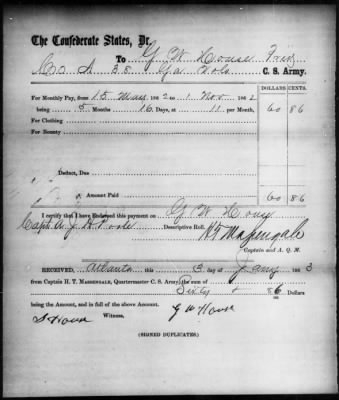 The Confederate States, Dr.
To G W House Priv
Co A 38 Ga Vols C. S. Army.
DOLLARS CENTS.
For Monthly Pay, from 15 186 2 to 1 Nov 186 2
being 5 Months 16 Days, at 11 per Month, 60 86
For Clothing
For Bounty
Deduct, Due
Amount Paid 60 86
I certify that I have Endorsed this payment on G W House
Capt A J Descriptive Roll. H T Massengale
Captain and A. Q. M.
RECEIVED, Atlanta this 3 day of Jany 186 3
from Captain H. T. MASSENGALE, Quartermaster C. S. Army, the sum of
Sixty & 86 Dollars
being the Amount, and in full of the above Amount.
S House Witness, G W House
(SIGNED DUPLICATES)